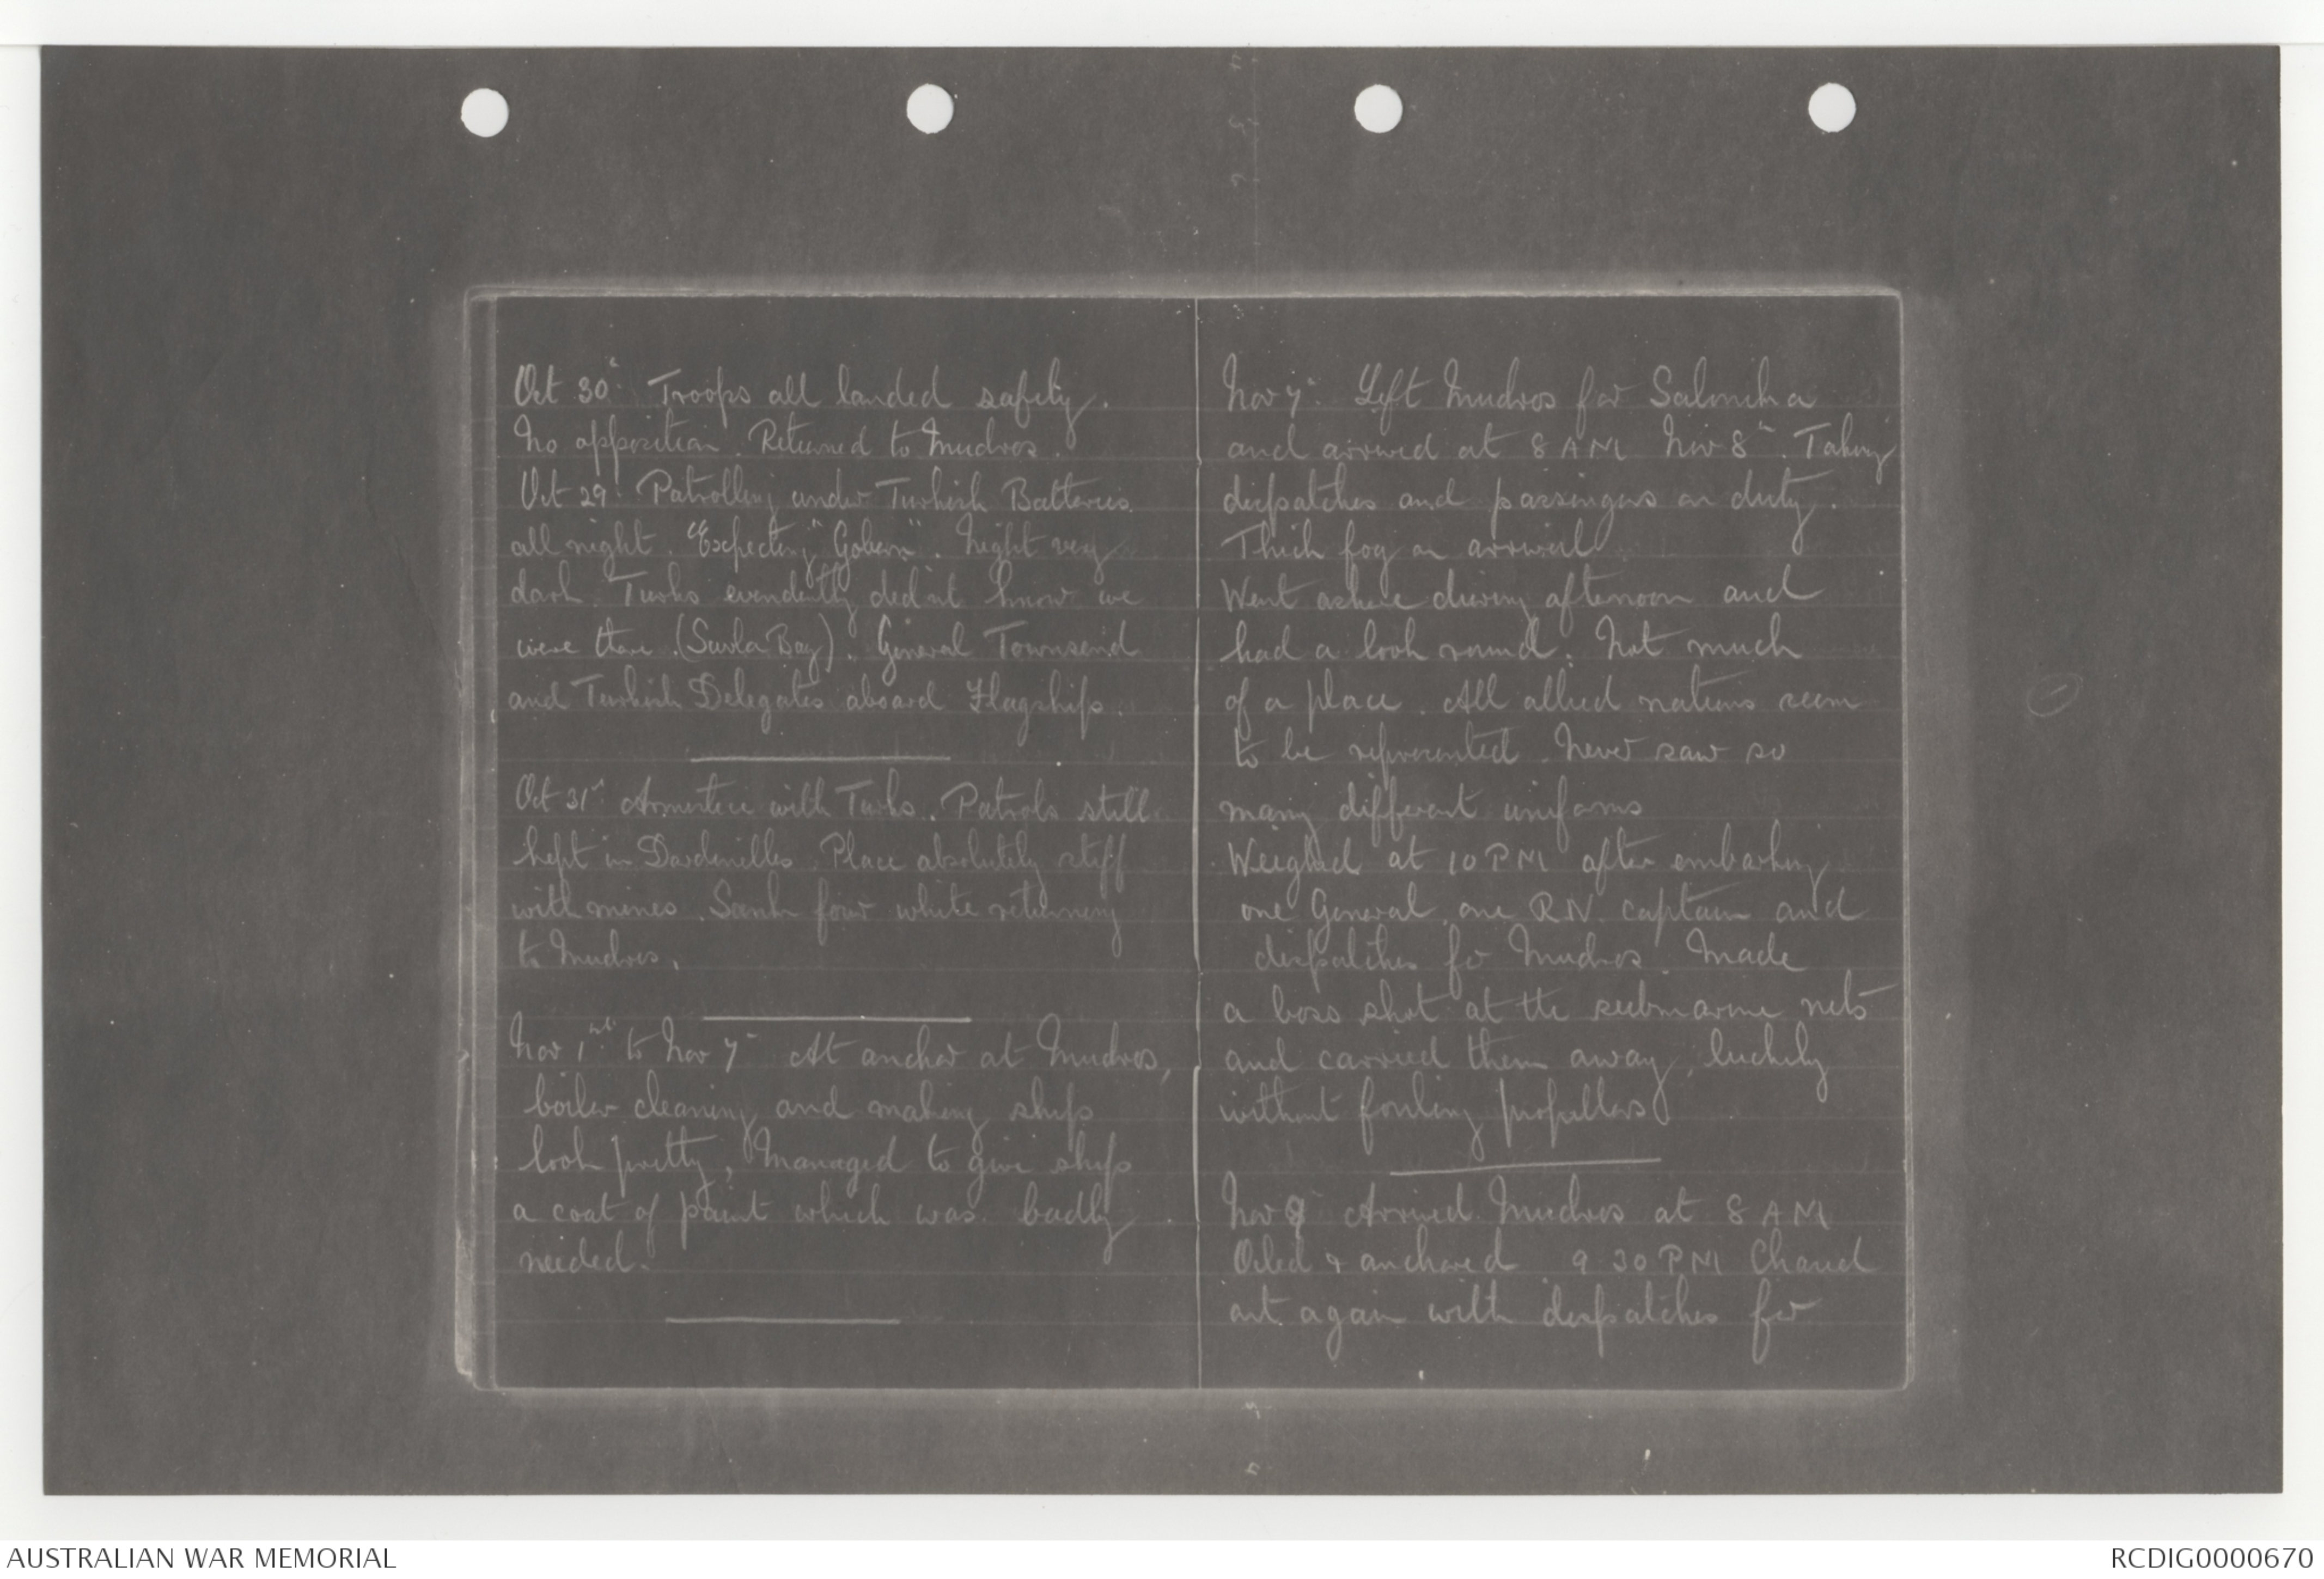 Oct 30th Troops all landed safely.
No opposition. Returned to Mudros.
Oct 29th Patrolling under Turkish Batteries
all night. Expecting "Goben". Night very
dark. Turks evendently did'nt know we
were there. (Suvla Bay). General Townsend
and Turkish Delegates aboard Flagship.
Oct 31st Armistice with Turks. Patrols still
kept in Dardenelles. Place absolutely stiff
with mines. Sank four while returning
to Mudros.
Nov 1st to Nov 7th At anchor at Mudros,
boiler cleaning and making ship
look pretty, Managed to give ship
a coat of paint which was badly
needed.
Nov 7th Left Mudros for Salonika
and arrived at 8 AM Nov 8th. Taking
dispatches and passengers on duty.
Thick fog on arrival
Went ashore during afternoon and
had a look round. Not much
of a place. All allied nations seem
to be represented. Never saw so
many different uniforms
Weighed at 10 PM after embarking
one General, one RN. captain and
dispatches for Mudros. Made
a boss shot at the submarine nets
and carried them away, luckily
without fouling propellers
Nov 9 Arrived Mudros at 8 AM
Oiled & anchored 9 30 PM Chased
out again with despatches for
AUSTRALIAN WAR MEMORIAL
RCDIG0000670